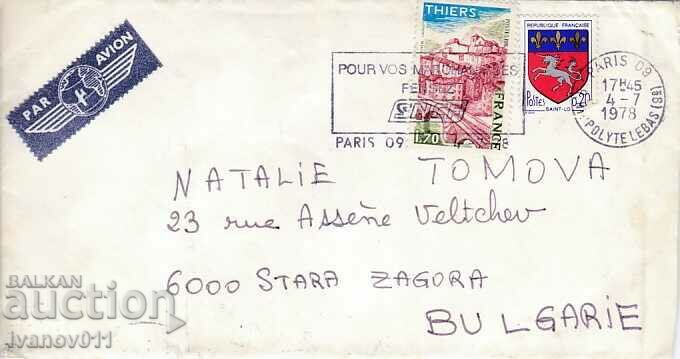 PAR AVION
THIERS
FRANCE
1,70
REPUBLIQUE FRANÇAISE
Postes 0,20
SAINT-LO
POUR VOS
SNCF
PARIS 09
PARIS 09
17H45
4-7
1978
HIPPOLYTE LEBAS (9e)
NATALIE TOMOVA
23 rue Assène Veltchev
6000 STARA ZAGORA
BULGARIE
BALKAN
auction
ivanov011